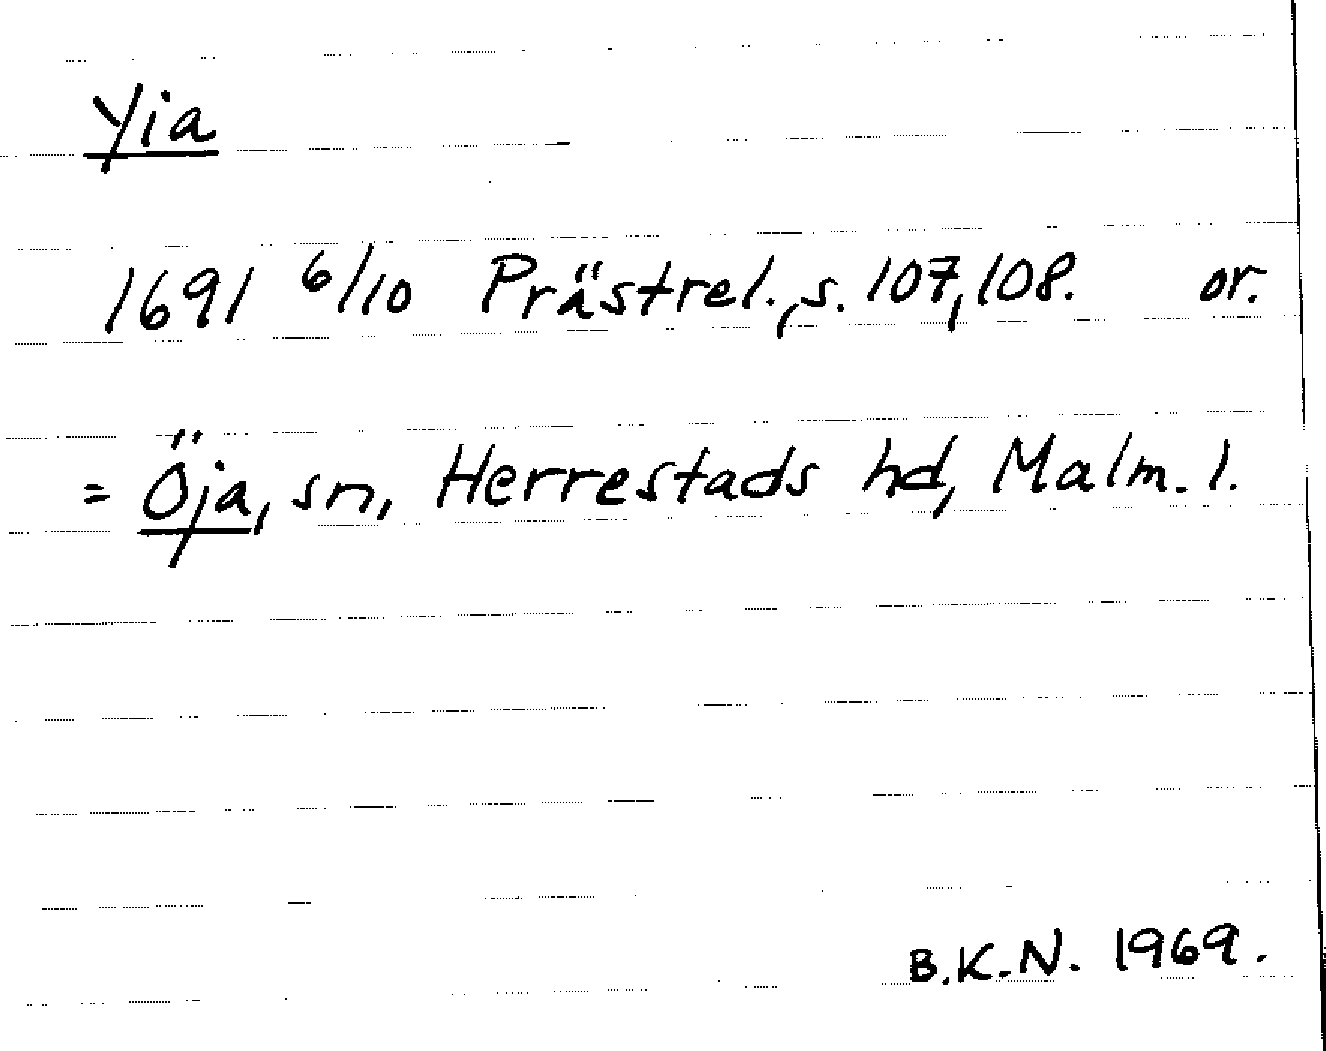 Yia
1691 6/10 Prästrel., s. 107, 108. or.
= Öja, sn, Herrestads hd, Malm. l.
B.K.N. 1969.